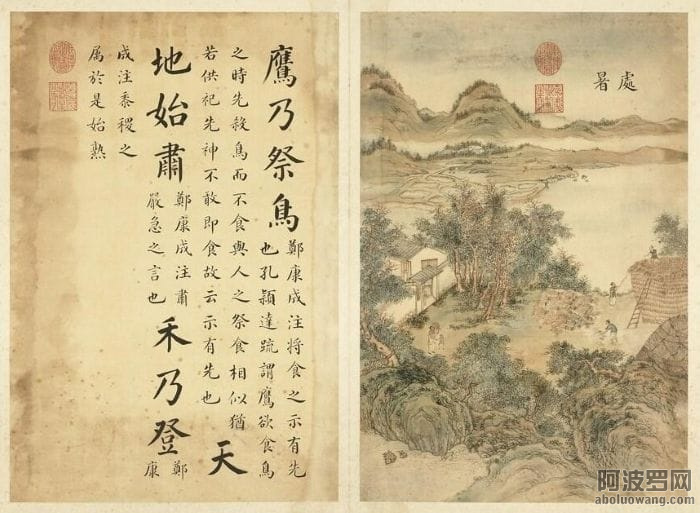 處暑
鷹乃祭鳥
鄭康成注將食之示有先
也孔穎達疏謂鷹欲食鳥
之時先殺鳥而不食與人之祭食相似猶
若供祀先神不敢即食故云示有先也
天
地始肅
鄭康成注肅
嚴急之言也
禾乃登
鄭
康
成注黍稷之
屬於是始熟
阿波罗网
aboluowang.com